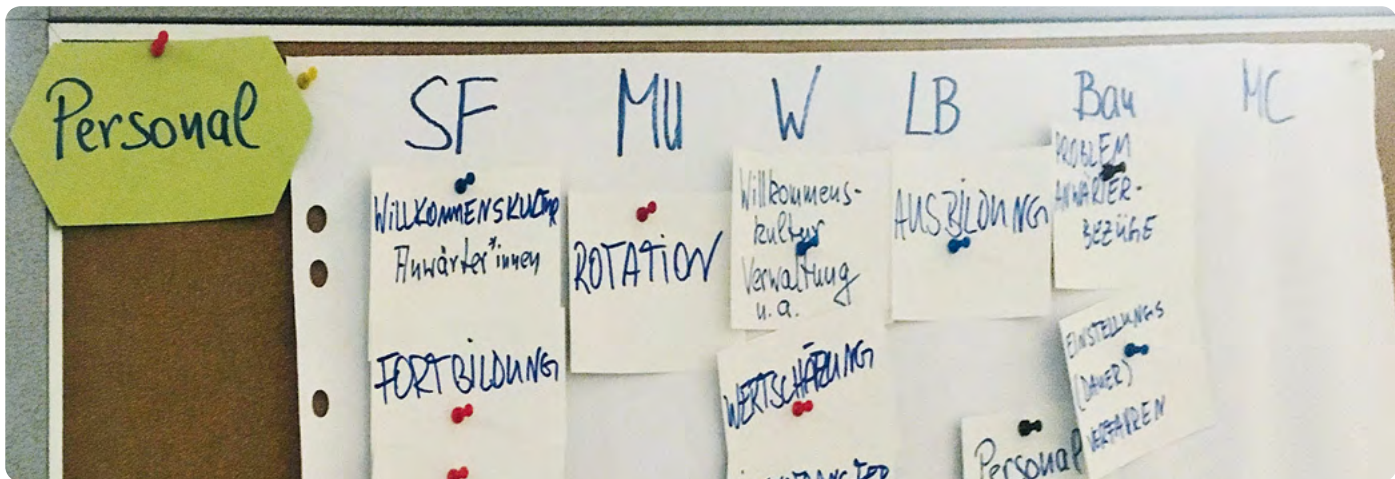 Personal
SF MU W LB Bau MC
WILLKOMMENSKULTUR
Anwärter*innen
FORTBILDUNG
ROTATION
Willkommens-
kultur
Verwaltung
u.a.
WERTSCHÄTZUNG
AUSBILDUNG
Personal
PROBLEM
ANWÄRTER-
BEZÜGE
EINSTELLUNGS
(DAUER)
VERFAHREN